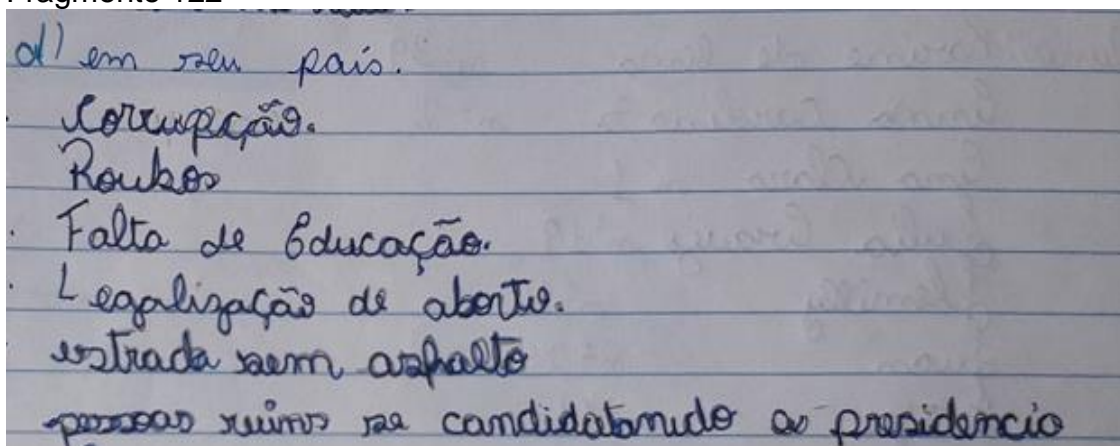 d) em seu país.
. Corrupção.
Roubos
. Falta de Educação.
. Legalização de aborto.
. estrada sem asphalto
pessoas ruins se candidatando a presidencia